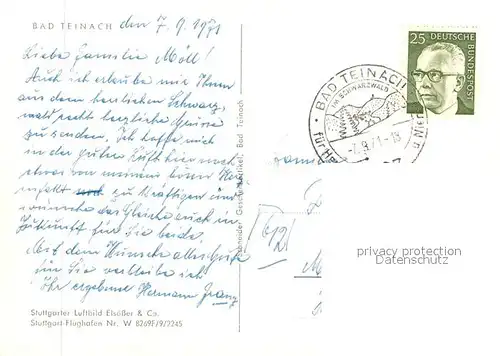 BAD TEINACH den 7.9.1971
Liebe Familie Möll!
Auch ich erlaube mir Ihnen
aus dem herrlichen Schwarz-
wald recht herzliche Grüsse
zu senden. Ich hoffe mich
in der guten Luft hier noch
etwas von meinem bösen
zu kräftigen und
wünsche das Gleiche auch in
Zukunft für Sie beide.
Mit dem Wunsche alles Gute
für Sie verbleibe ich
Ihr ergebener Hermann Franz
Stuttgarter Luftbild Elsäßer & Co.
Stuttgart-Flughafen Nr. W 8269F/9/2245
Geschenkartikel, Bad Teinach
25 DEUTSCHE
BUNDESPOST
BAD TEINACH
IM SCHWARZWALD
-7.9.71-18
für
Famil
privacy protection
watermark